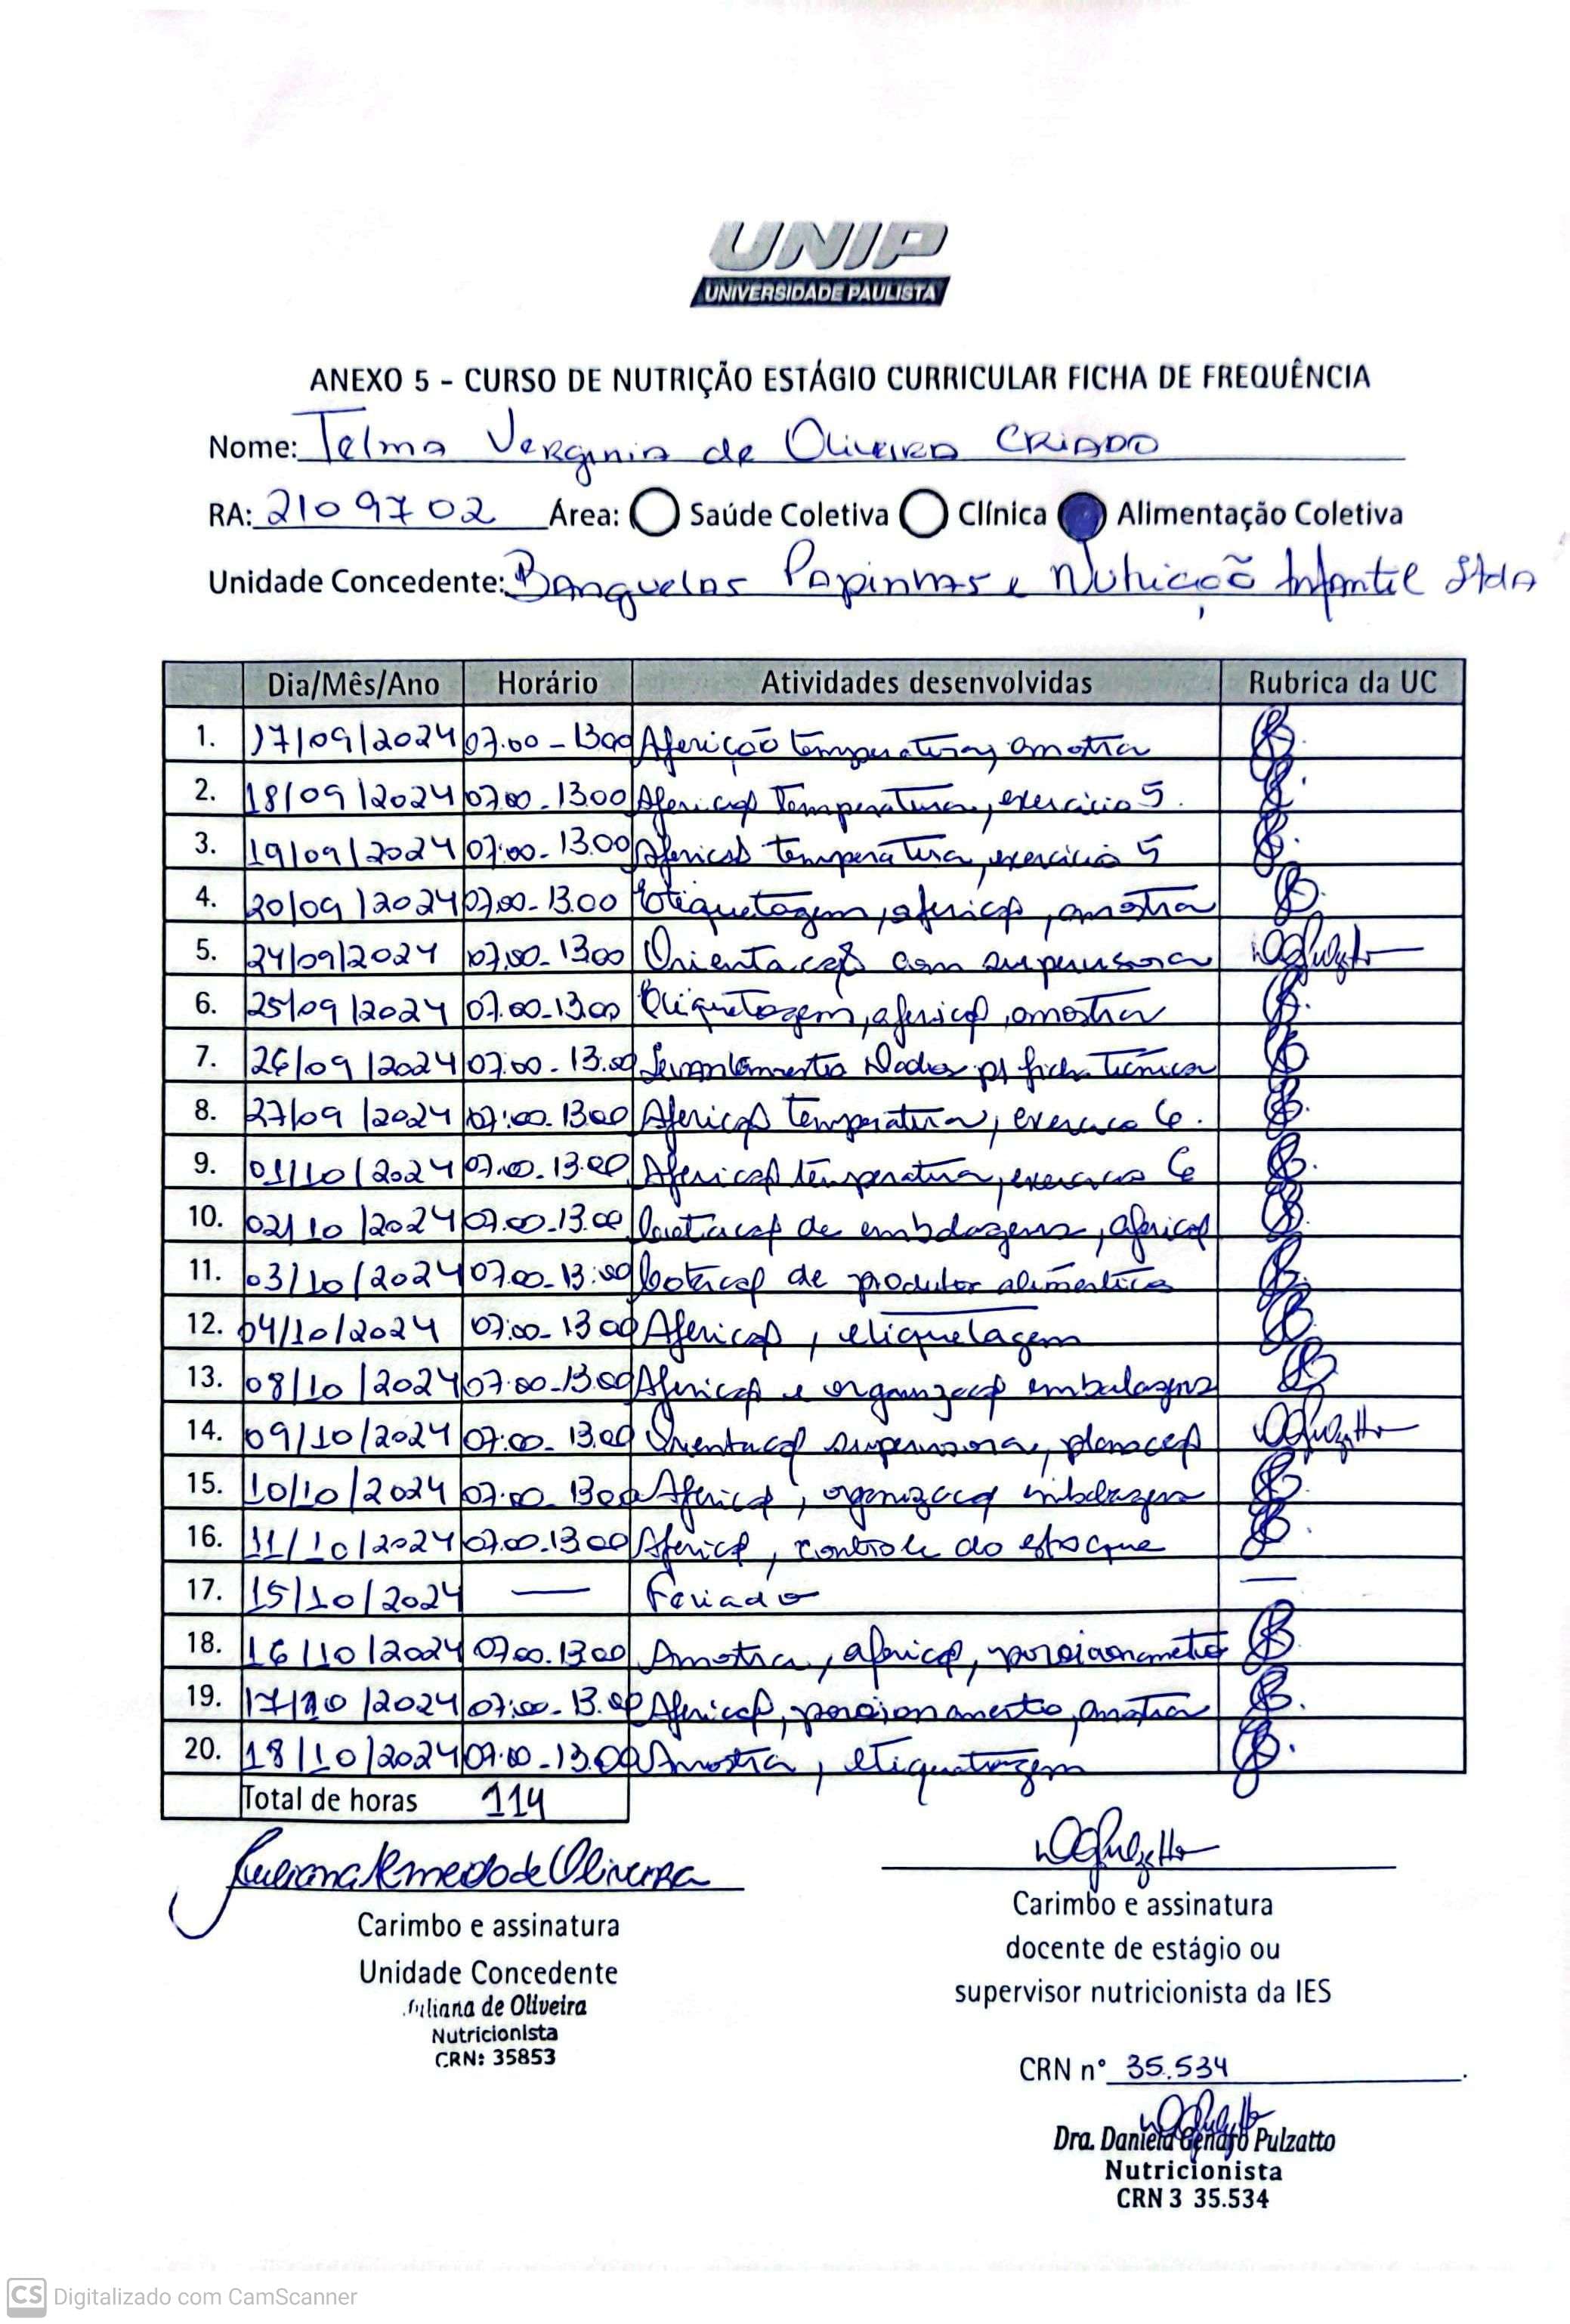 UNIP
UNIVERSIDADE PAULISTA
ANEXO 5 - CURSO DE NUTRIÇÃO ESTÁGIO CURRICULAR FICHA DE FREQUÊNCIA
Nome: Telma Verginia de Oliveira CRIADO
RA: 2109702 Área: Saúde Coletiva Clínica Alimentação Coletiva
Unidade Concedente: Banguelas Papinhas e Nutrição Infantil Ltda
Dia/Mês/Ano Horário Atividades desenvolvidas Rubrica da UC
1. 17/09/2024 07.00 - 1300 Aferição temperatura, amostra
2. 18/09/2024 07.00 - 13.00 Aferição Temperatura, exercício 5.
3. 19/09/2024 07:00 - 13.00 Aferição temperatura, exercício 5
4. 20/09/2024 07.00 - 13.00 Etiquetagem, aferição, amostra
5. 24/09/2024 07.00 - 1300 Orientação com supervisora
6. 25/09/2024 07.00 - 13.00 Etiquetagem, aferição, amostra
7. 26/09/2024 07.00 - 13.00 Levantamento Dados p/ ficha Técnica
8. 27/09/2024 07:00 - 13.00 Aferição temperatura, exercício 6.
9. 01/10/2024 07.00 - 13.00 Aferição temperatura, exercício 6
10. 02/10/2024 07.00 - 13.00 de embalagens, aferição
11. 03/10/2024 07.00 - 13:00 Cotação de produtos alimentícios
12. 04/10/2024 07:00 - 13 00 Aferição, etiquetagem
13. 08/10/2024 07.00 - 13.00 Aferição e organização embalagens
14. 09/10/2024 07:00 - 13.00 Orientação supervisora,
15. 10/10/2024 07.00 - 1300 Aferição, organização embalagem
16. 11/10/2024 07.00 - 13.00 Aferição, controle do estoque
17. 15/10/2024 — Feriado —
18. 16/10/2024 07.00 - 13.00 Amostra, aferição, porcionamento
19. 17/10/2024 07:00 - 13.00 Aferição, porcionamento, amostra
20. 18/10/2024 07.00 - 13.00 Amostra, etiquetagem
Total de horas 114
Juliana Almeida de Oliveira
Carimbo e assinatura
Unidade Concedente
Juliana de Oliveira
Nutricionista
CRN: 35853
Carimbo e assinatura
docente de estágio ou
supervisor nutricionista da IES
CRN n° 35.534.
Dra. Daniela Genaro Pulzatto
Nutricionista
CRN 3 35.534
CS Digitalizado com CamScanner